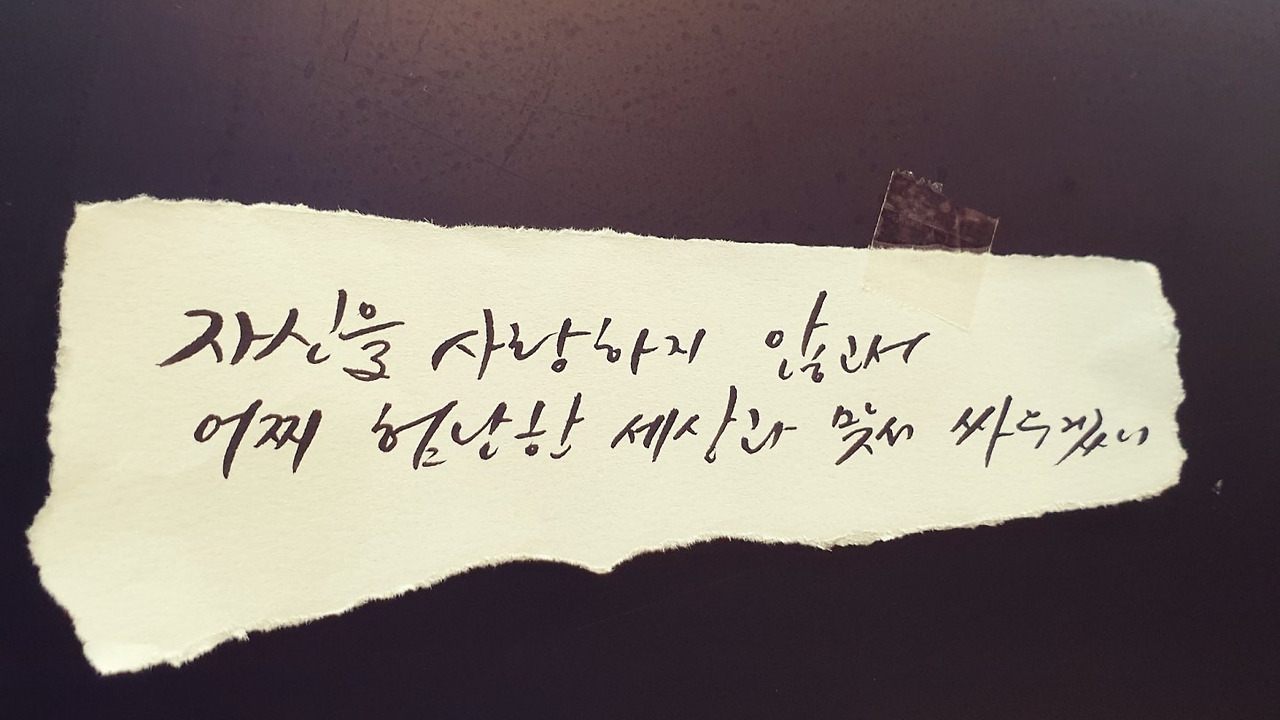 자신을 사랑하지 않고서
어찌 험난한 세상과 맞서 싸우겠니